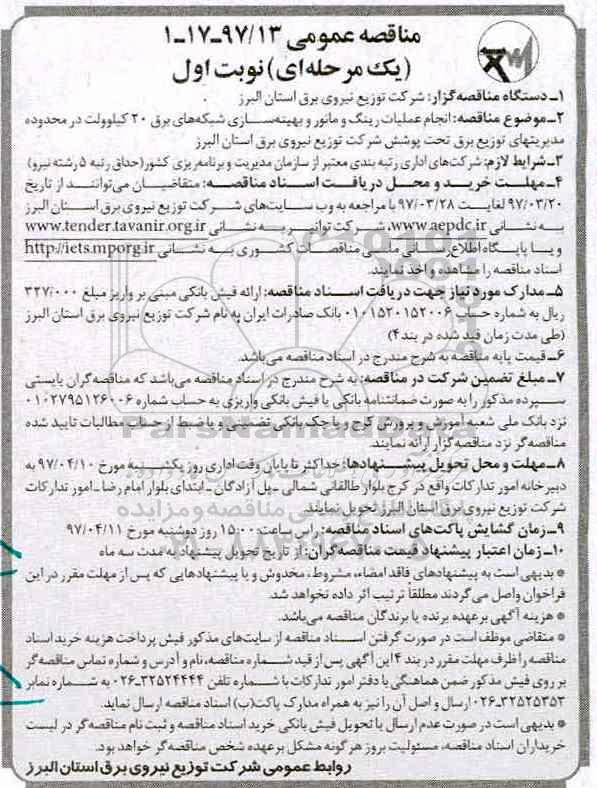 مناقصه عمومی ۹۷/۱۳-۱۷-۱
(یک مرحله‌ای) نوبت اول
۱- دستگاه مناقصه‌گزار: شرکت توزیع نیروی برق استان البرز
۲- موضوع مناقصه: انجام عملیات رینگ و مانور و بهینه‌سازی شبکه‌های برق ۲۰ کیلوولت در محدوده
مدیریتهای توزیع برق تحت پوشش شرکت توزیع نیروی برق استان البرز
۳- شرایط لازم: شرکت‌های اداری رتبه بندی معتبر از سازمان مدیریت و برنامه‌ریزی کشور (حداق رتبه ۵ رشته نیرو)
۴- مهلت خرید و محل دریافت اسناد مناقصه: متقاضیان می‌توانند از تاریخ
۹۷/۰۳/۲۰ لغایت ۹۷/۰۳/۲۸ با مراجعه به وب سایت‌های شرکت توزیع نیروی برق استان البرز
به نشانی www.aepdc.ir، شرکت توانیر به نشانی www.tender.tavanir.org.ir
و یا پایگاه اطلاع‌رسانی ملی مناقصات کشوری به نشانی http://iets.mporg.ir
اسناد مناقصه را مشاهده و اخذ نمایند.
۵- مدارک مورد نیاز جهت دریافت اسناد مناقصه: ارائه فیش بانکی مبنی بر واریز مبلغ ۳۲۷/۰۰۰
ریال به شماره حساب ۰۱۰۱۵۲۰۱۵۲۰۰۶ بانک صادرات ایران به نام شرکت توزیع نیروی برق استان البرز
(طی مدت زمان قید شده در بند ۴)
۶- قیمت پایه مناقصه به شرح مندرج در اسناد مناقصه می‌باشد.
۷- مبلغ تضمین شرکت در مناقصه: به شرح مندرج در اسناد مناقصه می‌باشد که مناقصه‌گران بایستی
سپرده مذکور را به صورت ضمانتنامه بانکی یا فیش بانکی واریزی به حساب شماره ۰۱۰۲۷۹۵۱۲۶۰۰۶
نزد بانک ملی شعبه آموزش و پرورش کرج و یا چک بانکی تضمینی و یا ضبط از حساب مطالبات تایید شده
مناقصه‌گر نزد مناقصه‌گزار ارائه نمایند.
۸- مهلت و محل تحویل پیشنهادها: حداکثر تا پایان وقت اداری روز یکشنبه مورخ ۹۷/۰۴/۱۰ به
دبیرخانه امور تدارکات واقع در کرج بلوار طالقانی شمالی - پل آزادگان - ابتدای بلوار امام رضا - امور تدارکات
شرکت توزیع نیروی برق استان البرز تحویل نمایند.
۹- زمان گشایش پاکت‌های اسناد مناقصه: راس ساعت ۱۵:۰۰ روز دوشنبه مورخ ۹۷/۰۴/۱۱
۱۰- زمان اعتبار پیشنهاد قیمت مناقصه‌گران: از تاریخ تحویل پیشنهاد به مدت سه ماه
* بدیهی است به پیشنهادهای فاقد امضاء، مشروط، مخدوش و یا پیشنهادهایی که پس از مهلت مقرر در این
فراخوان واصل می‌گردند مطلقاً ترتیب اثر داده نخواهد شد.
* هزینه آگهی برعهده برنده یا برندگان مناقصه می‌باشد.
* متقاضی موظف است در صورت گرفتن اسناد مناقصه از سایت‌های مذکور فیش پرداخت هزینه خرید اسناد
مناقصه را ظرف مهلت مقرر در بند ۴ این آگهی پس از قید شماره مناقصه، نام و آدرس و شماره تماس مناقصه‌گر
بر روی فیش مذکور ضمن هماهنگی با دفتر امور تدارکات با شماره تلفن ۳۲۵۲۴۴۴۴-۰۲۶ به شماره نمابر
۳۲۵۲۵۳۵۳-۰۲۶ ارسال و اصل آن را نیز به همراه مدارک پاکت (ب) اسناد مناقصه ارسال نماید.
* بدیهی است در صورت عدم ارسال یا تحویل فیش بانکی خرید اسناد مناقصه و ثبت نام مناقصه‌گر در لیست
خریداران اسناد مناقصه، مسئولیت بروز هرگونه مشکل برعهده شخص مناقصه‌گر خواهد بود.
روابط عمومی شرکت توزیع نیروی برق استان البرز